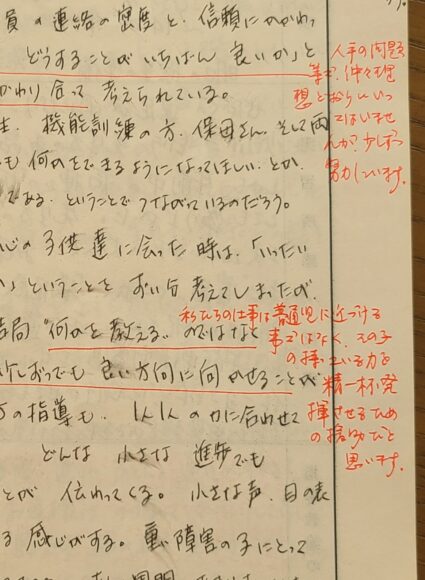 員の連絡の密度と、信頼にかかわっ
どうすることがいちばん良いか」と
かわり合って考えられている。
機能訓練の方、保母さん、そして両
も何かをできるようになってほしいとか、
である、ということでつながっているのだろう。
心の子供達に会った時は、「いったい
」ということをずい分考えてしまったが、
結局"何かを教える"のではなく
少しずつでも良い方向に向かせることが
の指導も、1人1人の力に合わせて
どんな小さな進歩でも
とが伝わってくる。小さな声、目の表
る感じがする。重い障害の子にとって
人手の問題
等で、仲々理
想どおりにいっ
てはいませ
んが、少しずつ
努力しています。
私たちの仕事は普通児に近づける
事ではなく、その子
の持っている力を
精一杯発
揮させるため
の援助だと
思います。